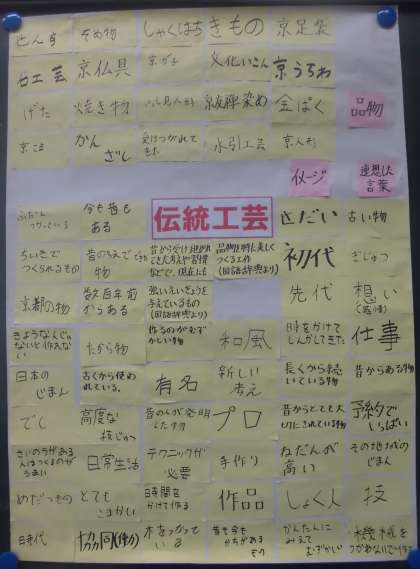 せんす
そめ物
しゃくはち
きもの
京足袋
石工芸
京仏具
京がし
文化いさん
京うちわ
げた
焼き物
京友禅染め
金ぱく
品物
京こま
かんざし
受けつがれて
きた
水引工芸
京人形
イメージ
連想した
言葉
ふだん
つかっている
今も昔も
ある
伝統工芸
古い物
ちいきで
つくられるもの
昔の
物
初代
ぎじゅつ
京都の物
数百年前
からある
強いえいきょうを
与えているもの
(国語辞典より)
先代
想い
きような人じゃ
ないと作れな
い
たから物
作るのがむず
かしい物
和風
時をかけて
しんかしてきた
仕事
日本の
じまん
古くから使わ
れている。
有名
新しい
考え
長くから続
いている物
昔からある物
でし
高度な
技じゅつ
昔の人が発明
した物
プロ
昔からとても大
切にされている物
予約で
いっぱい
さいのうがある
人はつくるのが
うまい
日常生活
テクニックが
必要
手作り
ねだんが
高い
その地域の
じまん
めだつもの
とても
こまかい
時間を
かけて作る
作品
しょく人
技
時代
協同(作)
木をつかって
いる
昔も今も
かちがある
もの
かんたんに
みえて
むずかしい
機械を
つかわないで作る